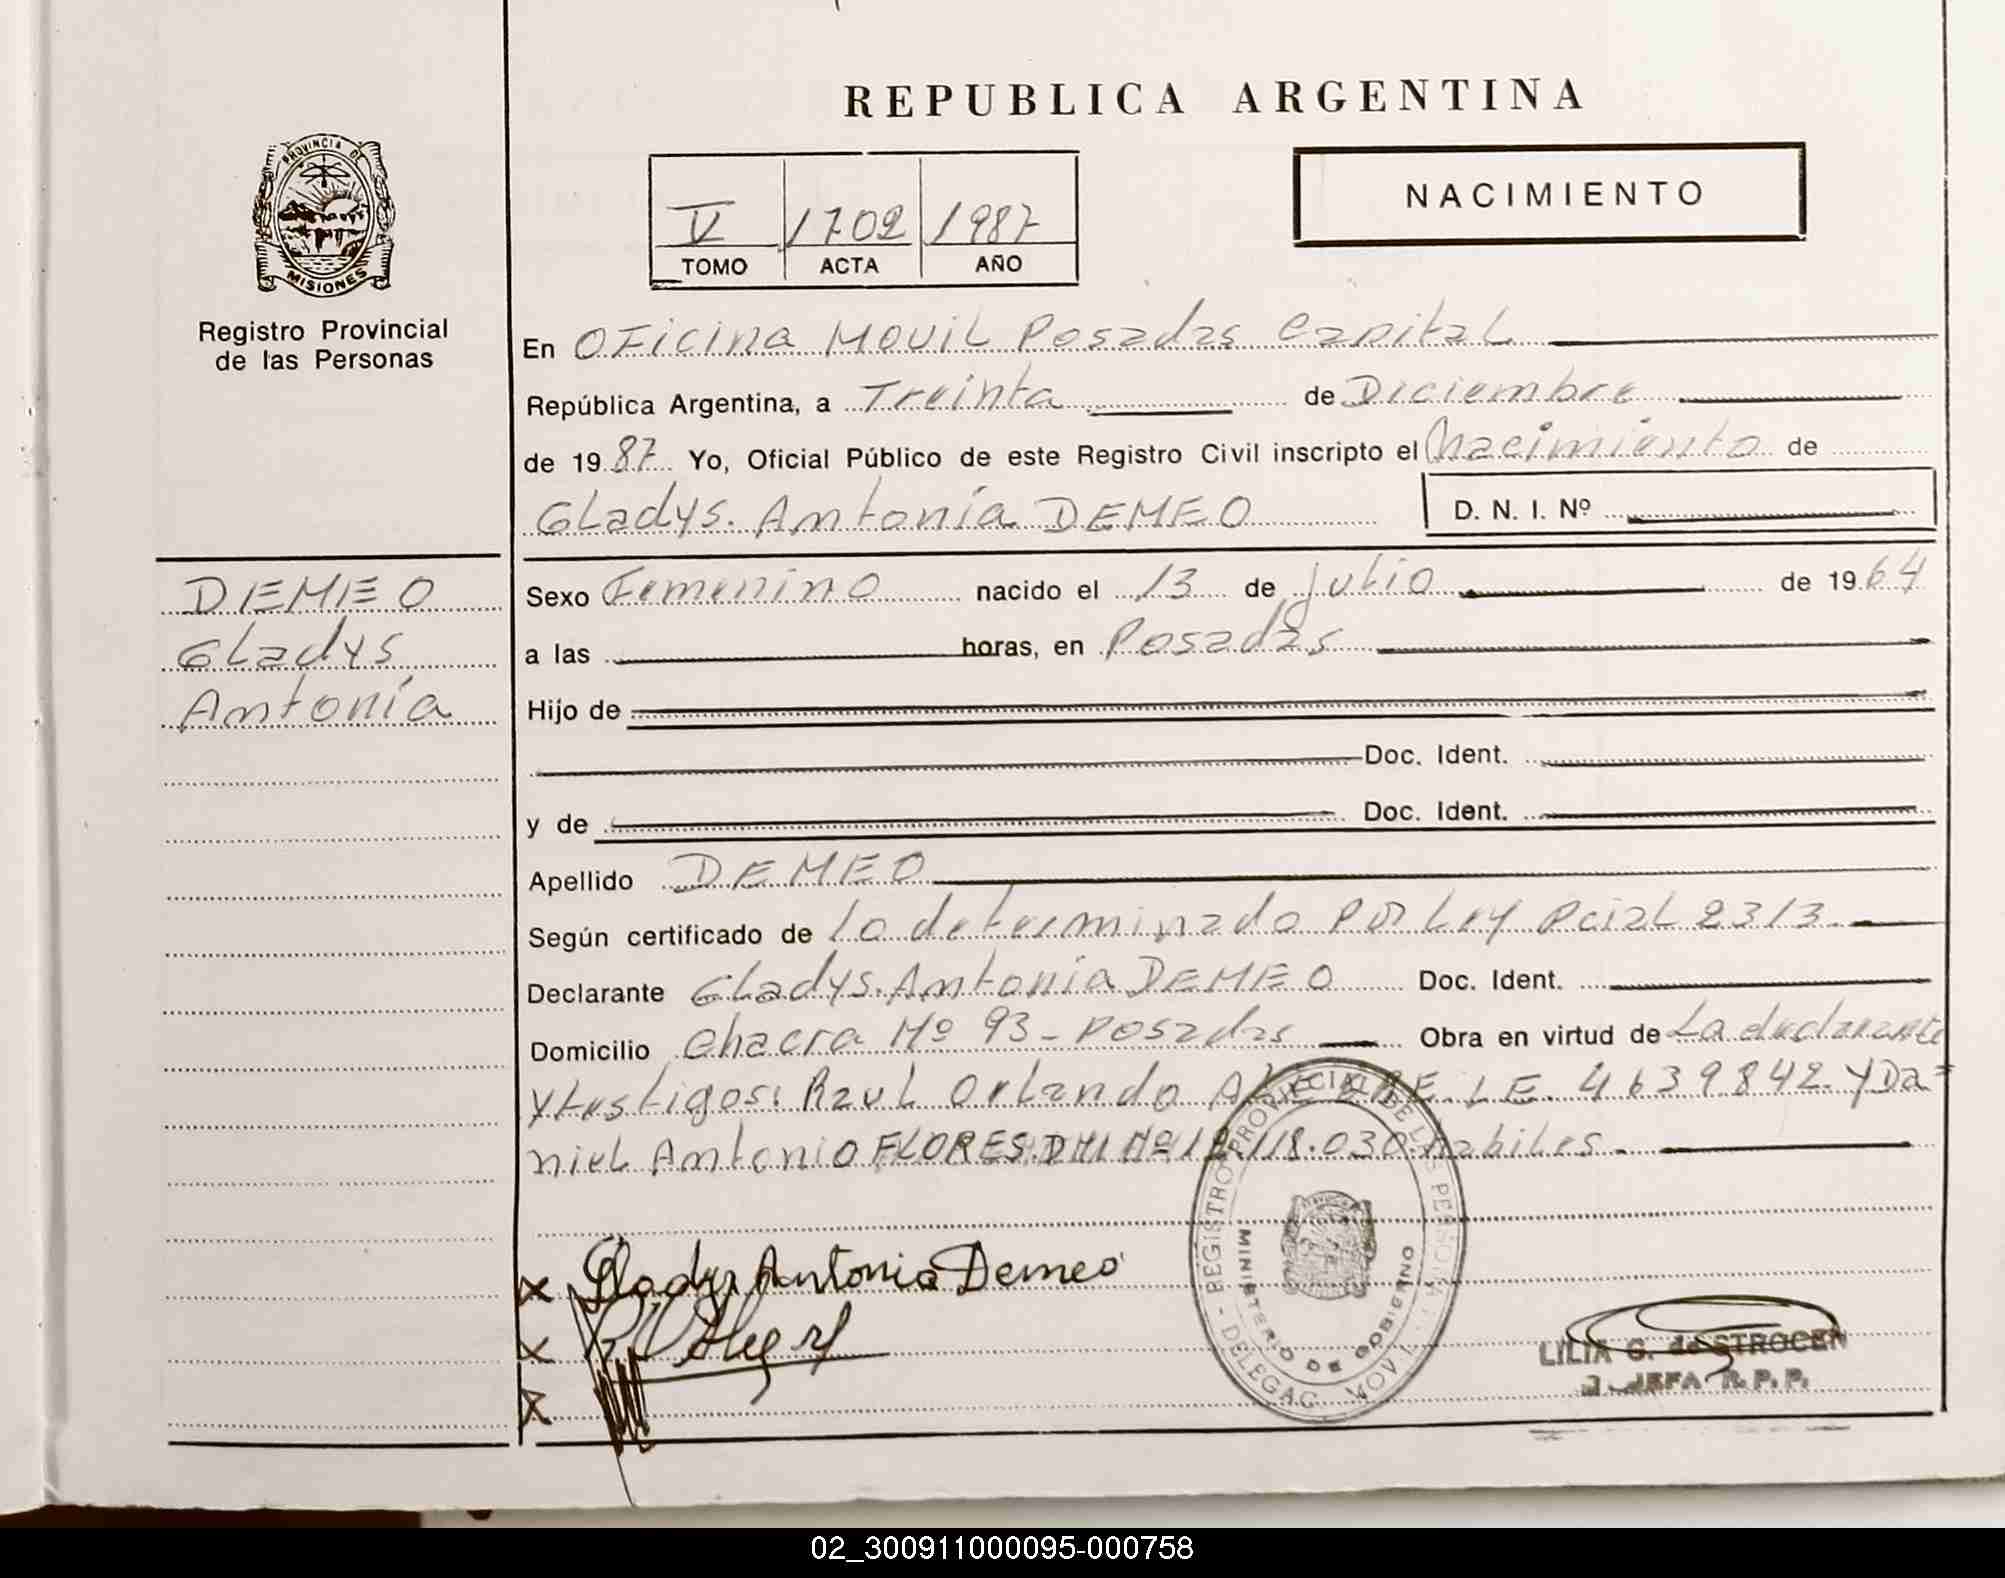 REPUBLICA ARGENTINA
PROVINCIA DE
MISIONES
Registro Provincial
de las Personas
V 1702 1987
TOMO ACTA AÑO
NACIMIENTO
En Oficina Movil Posadas Capital
República Argentina, a Treinta de Diciembre
de 1987 Yo, Oficial Público de este Registro Civil inscripto el Nacimiento de
Gladys Antonia DEMEO D. N. I. Nº
DEMEO
Gladys
Antonia
Sexo Femenino nacido el 13 de julio de 1964
a las horas, en Posadas
Hijo de
Doc. Ident.
y de Doc. Ident.
Apellido DEMEO
Según certificado de lo determinado por Ley Pcial 2313.
Declarante Gladys Antonia DEMEO Doc. Ident.
Domicilio Chacra Nº 93 - Posadas Obra en virtud de La declarante
y testigos: Raul Orlando ALEGRE. LE. 4639842. y Da=
niel Antonio FLORES. DNI Nº 12.118.030 habiles.
Gladys Antonia Demeo
REGISTRO PROVINCIAL DE LAS PERSONAS
MINISTERIO DE GOBIERNO
DELEGAC. MOVIL
LILIA G. de STROCEN
JEFA R. P. P.
02_300911000095-000758